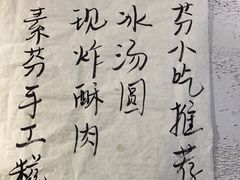 芬小吃推荐
冰汤圆
现炸酥肉
素芬手工糍